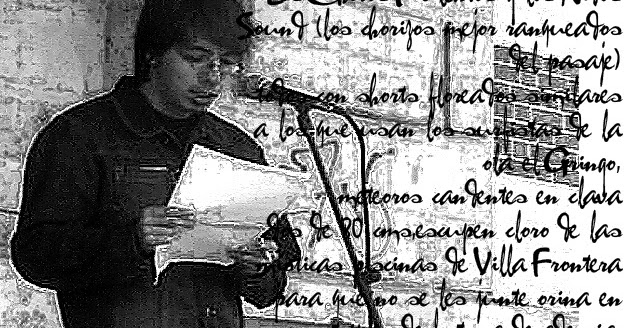 Sound (los chorizos mejor ranqueados
del pasaje)
con shorts floreados similares
a los que usan los surfistas de la
ola el Gringo,
meteoros candentes en clava
dos de 20 cms. escupen cloro de las
piscinas de Villa Frontera
para que no se les junte orina en